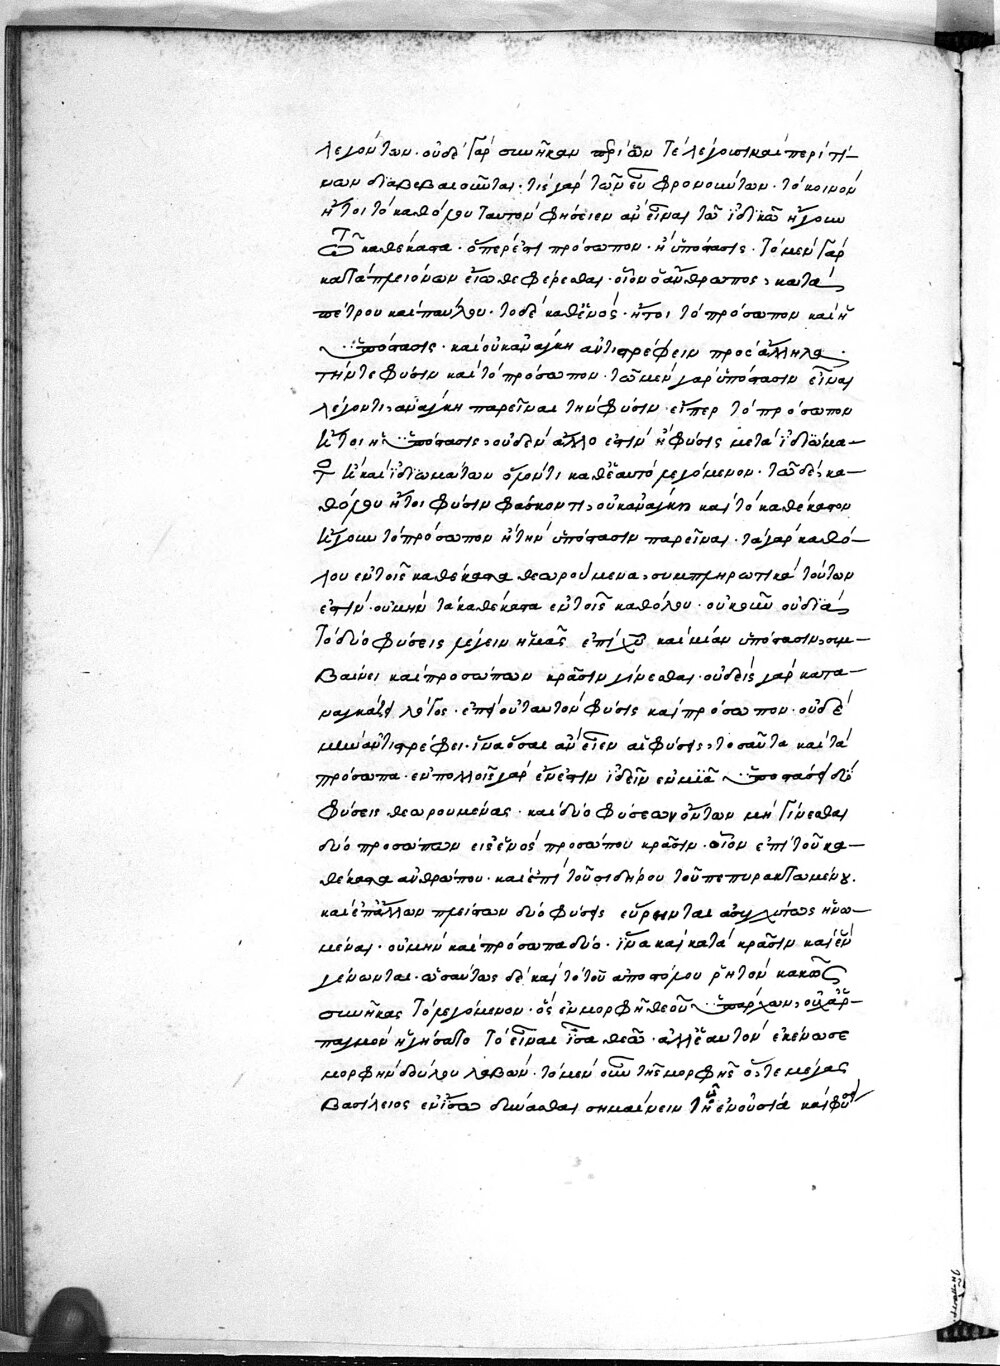 λεγόντων· οὐδὲ γὰρ συνῆκαν περὶ ὧν τε λέγουσι καὶ περὶ τί-
νων διαβεβαιοῦνται· τίς γὰρ τῶν εὖ φρονούντων· τὸ κοινὸν
ἤτοι τὸ καθόλου ταυτὸν φήσειεν ἂν εἶναι τῷ ἰδικῷ ἤγουν
τῷ καθέκαστα· ὅπερ ἐστὶ πρόσωπον· ἢ ὑπόστασις· τὸ μὲν γὰρ
κατὰ πλειόνων εἴωθε φέρεσθαι· οἷον ὁ ἄνθρωπος, κατὰ
πέτρου καὶ παύλου· τὸ δὲ καθ' ἑνός· ἤτοι τὸ πρόσωπον καὶ ἡ
ὑπόστασις· καὶ οὐκ ἀνάγκη ἀντιστρέφειν πρὸς ἄλληλα·
τήν τε φύσιν καὶ τὸ πρόσωπον· τῷ μὲν γὰρ ὑπόστασιν εἶναι
λέγοντι, ἀνάγκη παρεῖναι τὴν φύσιν· εἴπερ τὸ πρόσωπον
ἤτοι ἡ ὑπόστασις, οὐδὲν ἄλλο ἐστὶν ἢ φύσις μετὰ ἰδιώμα-
τος ἢ καὶ ἰδιωμάτων ὅλον τι καθ' ἑαυτὸ λεγόμενον· τῷ δὲ, κα-
θόλου ἤτοι φύσιν φάσκοντι, οὐκ ἀνάγκη καὶ τὸ καθέκαστον
ἤγουν τὸ πρόσωπον ἢ τὴν ὑπόστασιν παρεῖναι· τὰ γὰρ καθό-
λου ἐν τοῖς καθέκαστα θεωρούμενα, συμπληρωτικὰ τούτων
ἐστίν· οὐ μὴν τὰ καθέκαστα ἐν τοῖς καθόλου· οὐκ οὖν οὐ διὰ
τὸ δύο φύσεις λέγειν ἡμᾶς ἐπὶ χυ καὶ μίαν ὑπόστασιν, συμ-
βαίνει καὶ προσώπων κρᾶσιν γίνεσθαι· οὐδεὶς γὰρ κατα-
ναγκάζει λόγος· ἐπεὶ οὐ ταυτὸν φύσις καὶ πρόσωπον· οὐδὲ
μὴν ἀντιστρέφει· ἵνα ὅσαι ἂν εἶεν αἱ φύσεις, τοσαῦτα καὶ τὰ
πρόσωπα· ἐν πολλοῖς γὰρ ἔνεστιν ἰδεῖν ἐν μιᾷ ὑποστάσει δύο
φύσεις θεωρουμένας· καὶ δύο φύσεων ὄντων μὴ γίνεσθαι
δύο προσώπων εἰς ἑνὸς προσώπου κρᾶσιν· οἷον ἐπὶ τοῦ κα-
θέκαστα ἀνθρώπου· καὶ ἐπὶ τοῦ σιδήρου τοῦ πεπυρακτωμένου.
καὶ ἐπ' ἄλλων πλείστων δύο φύσεις εὕρηνται ἀσυγχύτως ἡνω-
μέναι· οὐ μὴν καὶ πρόσωπα δύο· ἵνα καὶ κατὰ κρᾶσιν καὶ ἓν
γένωνται· ὡσαύτως δὲ καὶ τὸ τοῦ ἀποστόλου ῥητὸν κακῶς
συνῆκας τὸ λεγόμενον· ὃς ἐν μορφῇ θεοῦ ὑπάρχων, οὐχ ἁρ-
παγμὸν ἡγήσατο τὸ εἶναι ἴσα θεῷ· ἀλλ' ἑαυτὸν ἐκένωσε
μορφὴν δούλου λαβών· τὸ μὲν οὖν τῆς μορφῆς ὅ, τε μέγας
βασίλειος ἐν ἴσῳ δύνασθαι σημαίνειν τῷ ἐν οὐσίᾳ καὶ φύσει